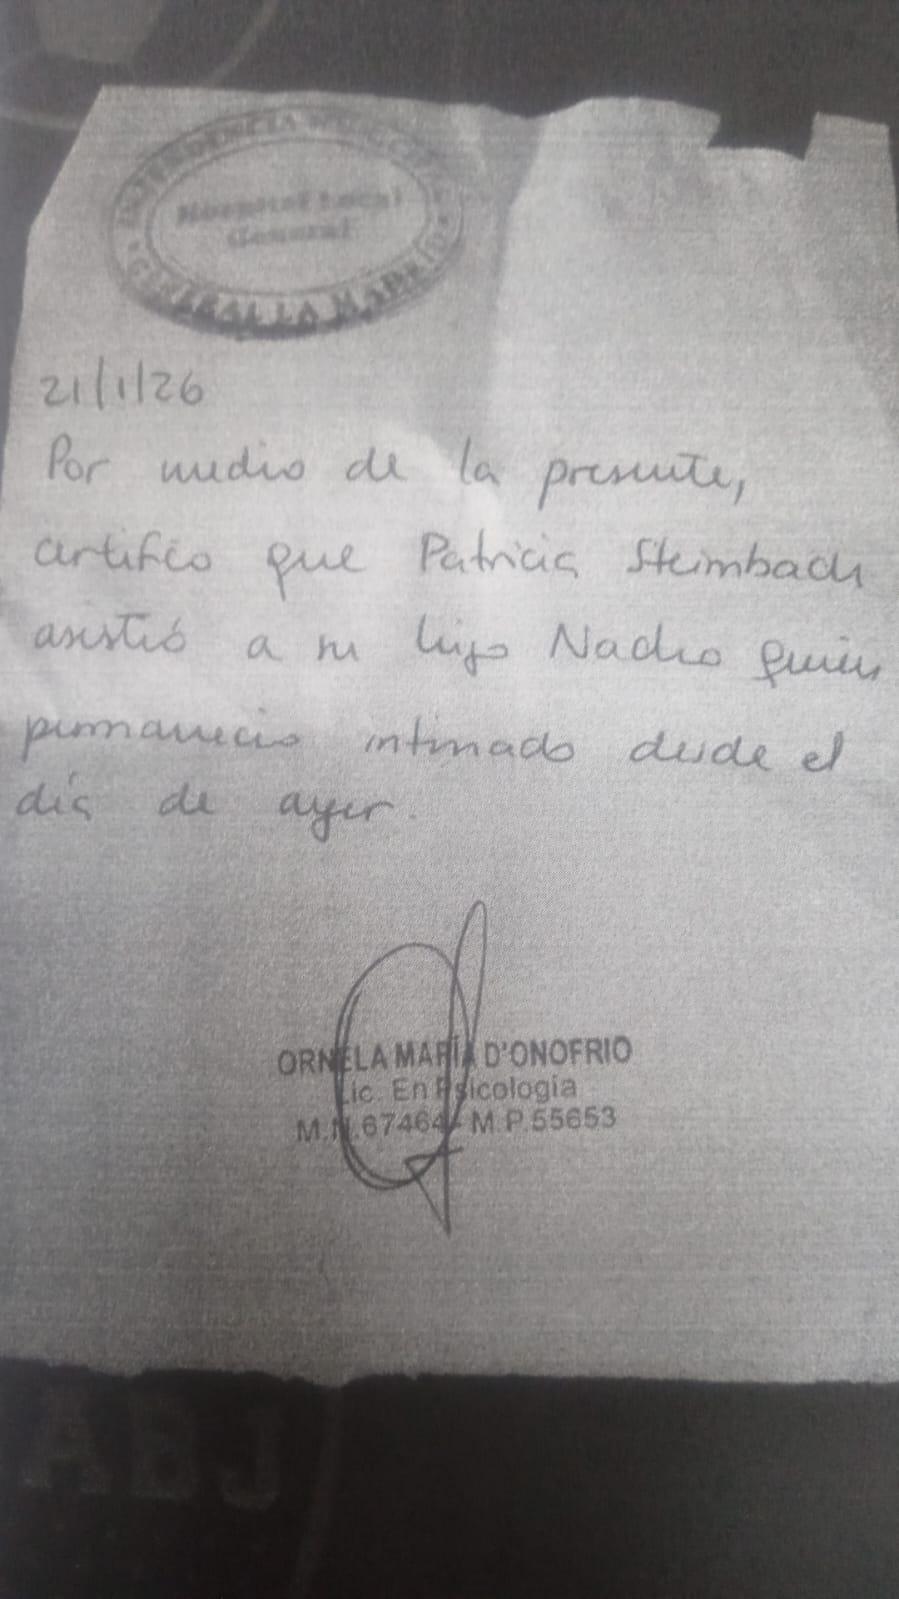 INTENDENCIA MUNICIPAL
Hospital Local
General
GENERAL LA MADRID
21/1/26
Por medio de la presente,
certifico que Patricia Steimbach
asistió a su hijo quien
permaneció internado desde el
día de ayer.
ORNELA MARÍA D'ONOFRIO
Lic. En Psicología
M.N.67464 M.P.55653
ABJ